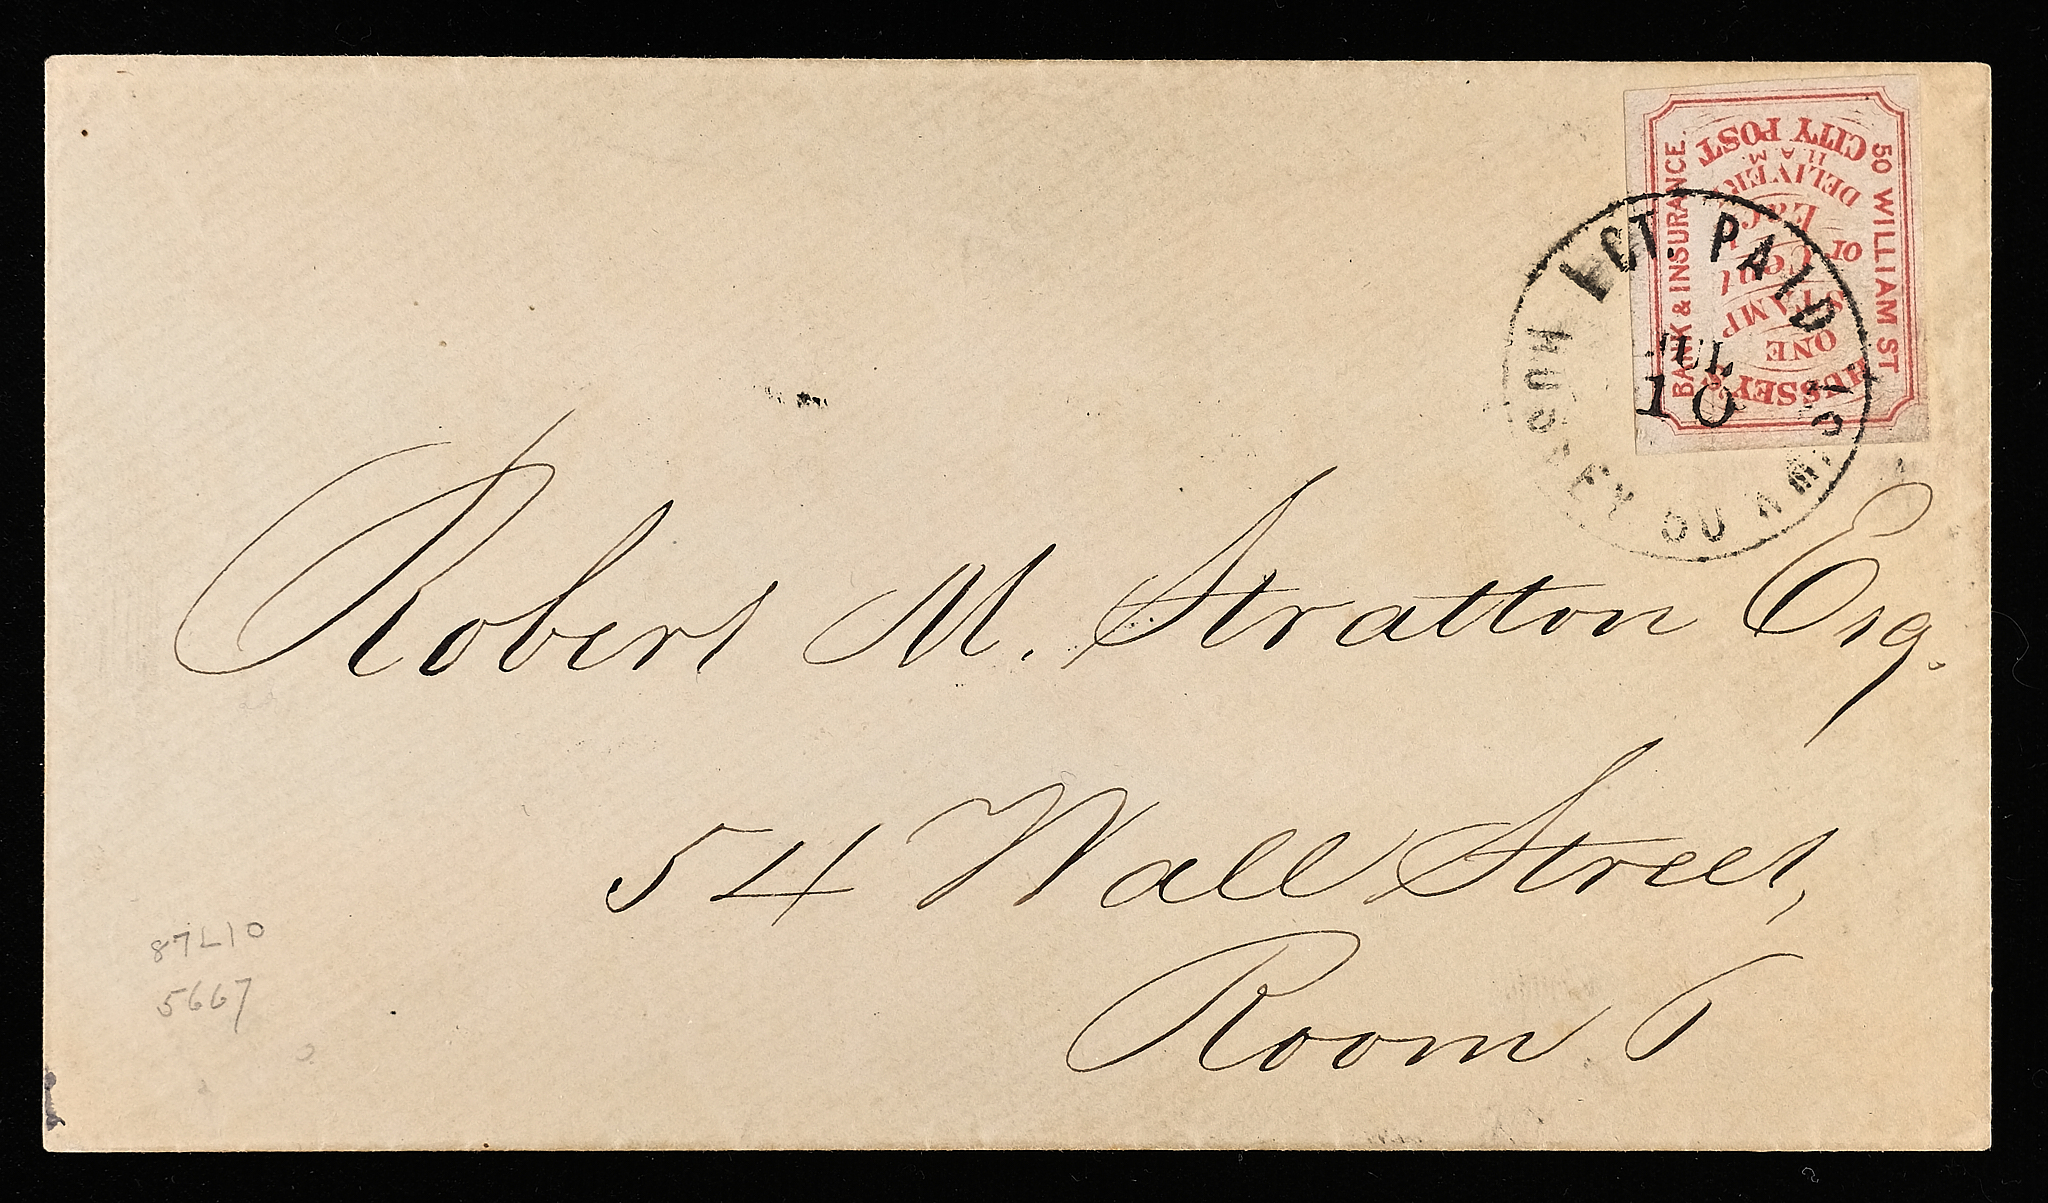 BANK & INSURANCE.
CITY POST
11 A M.
DELIVERY
or Cent
STAMP
ONE
HUSSEY
50 WILLIAM ST
1 CT. PAID
JUL
10
Robert M. Stratton Esq.
54 Wall Street,
Room 6
87L10
5667